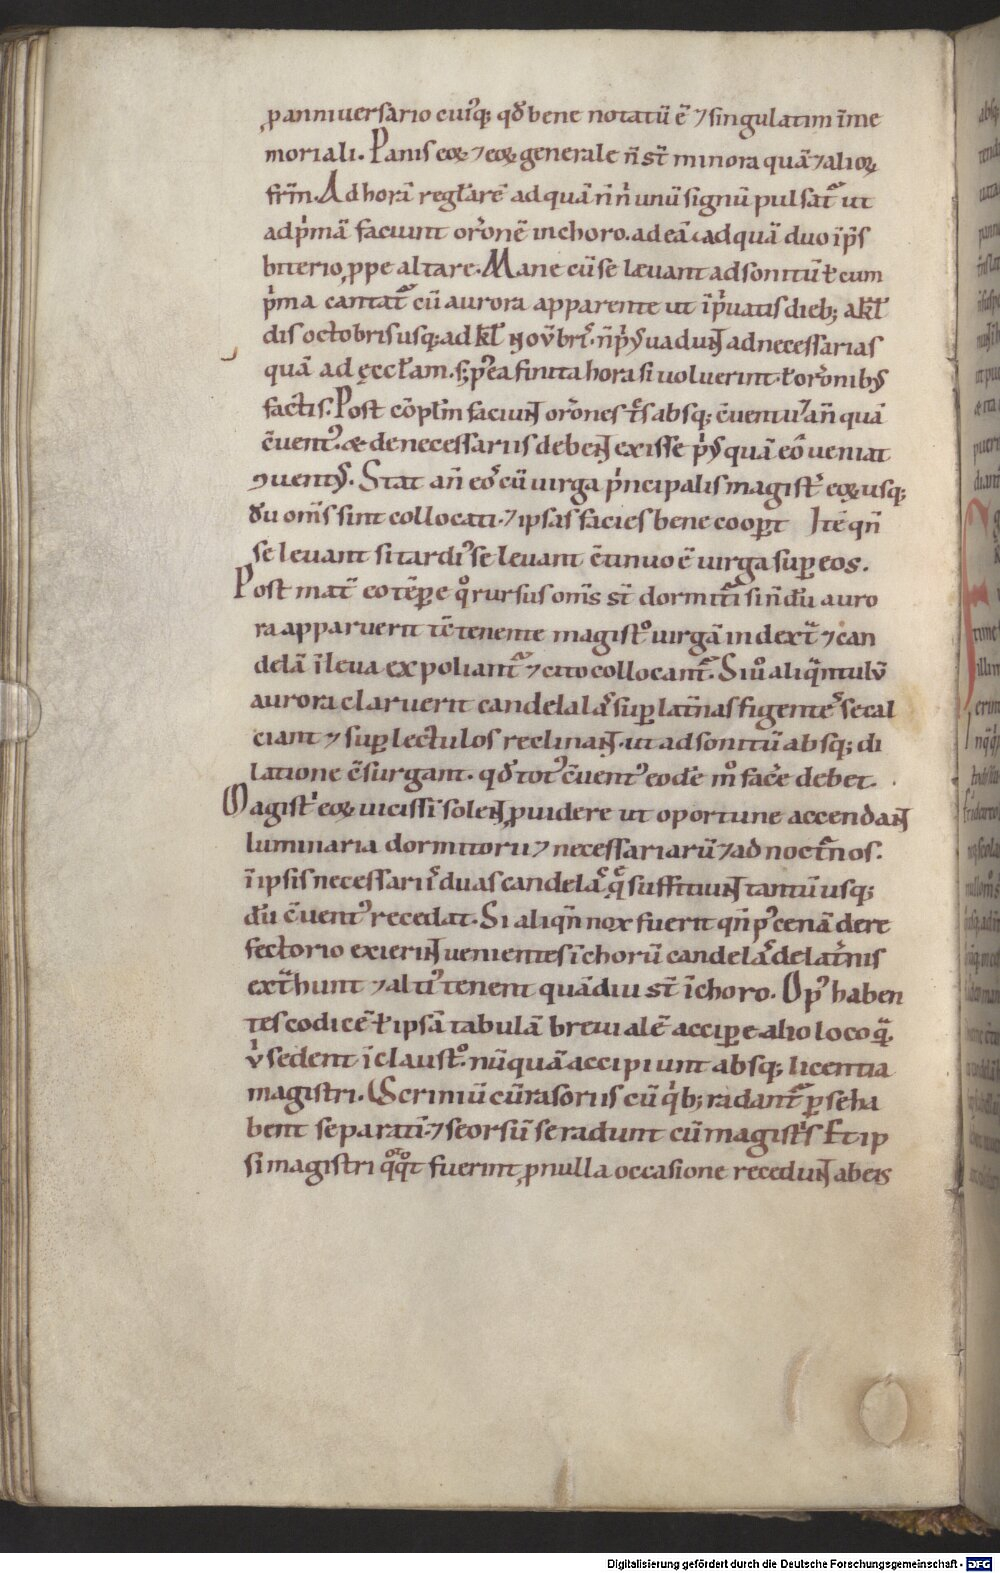 ꝓanniuersario cui᷒q; qđ bene notatū ē ⁊ singulatim īme
moriali. Panis eoꝝ ⁊ eoꝝ generale n̄ st̄ minora quā ⁊ alioꝝ
frm̄. Ad horā regłarē ad quā n̄ unū signū pulsat̄ ut
ad pͥmā faciunt or̄onē in choro. ad eā ad quā duo ip̄s
biterio ꝓpe altare. Mane cū se læuant ad sonitū ł cum
pͥma cantat̄ cū aurora apparente ut ī pͥuatis dieb; a kł
dis octobris usq; ad kł nov̄br̄. n̄ pͥ uadunt ad necessarias
quā ad ęccłam. s; p᷒ea finita hora si uoluerint ł or̄onibꝰ
factis. Post cōpł̄m faciunt or̄ones t̄s absq; c̄uentu. an̄ quā
c̄uent᷒. & de necessariis debent exisse pͥꝰ quā eo ueniat
ꝯuentꝰ. Stat an̄ eo᷒ cū uirga pͥncipalis magist̄ eoꝝ usq;
dū om̄s sint collocati. ⁊ ipsas facies bene coopt̄ Itē qn̄
se leuant si tardi᷒ se leuant c̄tinuo ē uirga suꝑ eos.
Post mat̄ eo tēꝑe qͦ rursus om̄s st̄ dormit̄i sin̄ dū auro
ra apparuerit tc̄ tenente magistͦ uirgā in dext̄ ⁊ can
delā ī leua expoliant̄ ⁊ cito collocant̄. Si uͦ aliqͣntulū
aurora claruerit candela la᷒ suꝑ lat̄nas figente᷒ se cal
ciant ⁊ suꝑ lectulos reclinant. ut ad sonitū absq; di
latione c̄surgant. qđ tot᷒ c̄uent᷒ eodē mͦ facē debet.
Magistͥ eoꝝ uicissī solent ꝓuidere ut oportune accendant
luminaria dormitorii ⁊ necessariarū ⁊ ad noct̄nos.
ī ipsis necessarii᷒ duas candela᷒ q̄ suffitiunt tantū usq;
dū c̄uent᷒ recedat. Si aliqn̄ nox fuerit qn̄ p᷒ cenā de re
fectorio exierint uenientes ī chorū candela᷒ de lat̄nis
ext̄hunt ⁊ alti᷒ tenent quādiu st̄ ī choro. Op᷒ haben
tes codicē ł ipsā tabulā breuialē acciꝑe alio loco qͣ
uͥ sedent ī claustͦ. nūquā accipiunt absq; licentia
magistri. Scriniū cū rasoriis cū qͥb; radant̄ ꝑ se ha
bent separatī. ⁊ seorsū se radunt cū magist̄s Et ip
si magistri qͦqͦt fuerint, ꝓ nulla occasione recedunt ab eis
Digitalisierung gefördert durch die Deutsche Forschungsgemeinschaft - DFG